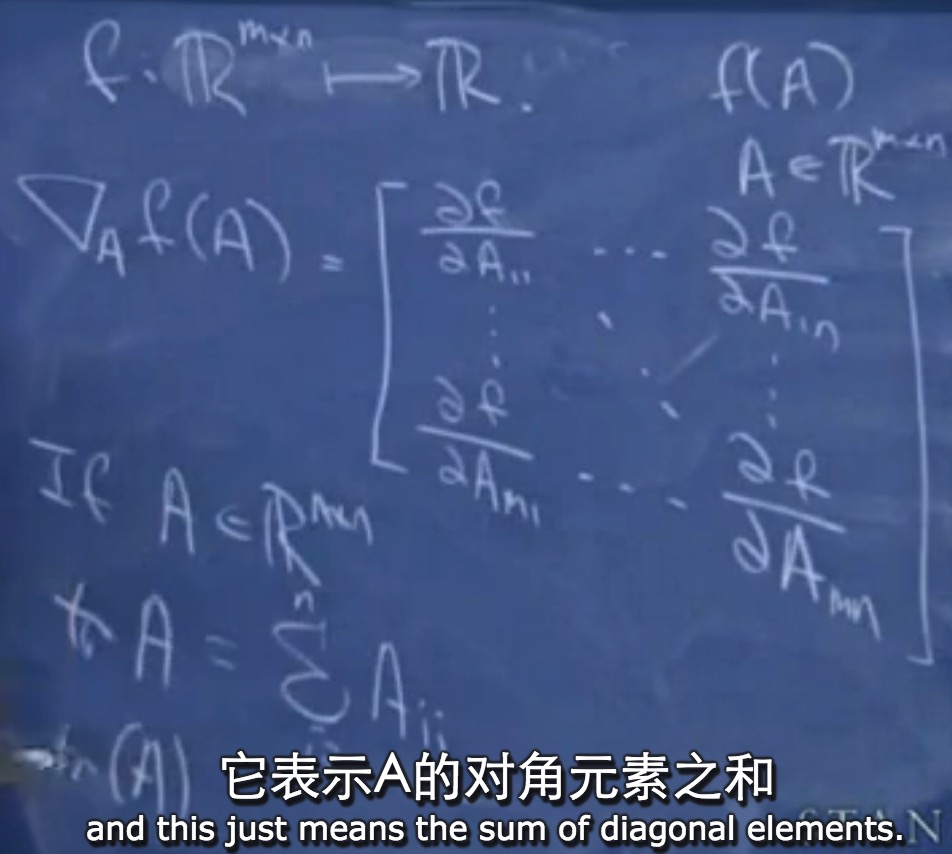 f: ℝ^{m×n} ↦ ℝ. f(A)
A ∈ ℝ^{m×n}
∇_A f(A) = [ ∂f/∂A_{11} ... ∂f/∂A_{1n}
⋮ ⋱ ⋮
∂f/∂A_{m1} ... ∂f/∂A_{mn} ]
If A ∈ ℝ^{n×n}
tr A = ∑^{n} A_{ii}
tr(A)
它表示A的对角元素之和
and this just means the sum of diagonal elements.
STAN